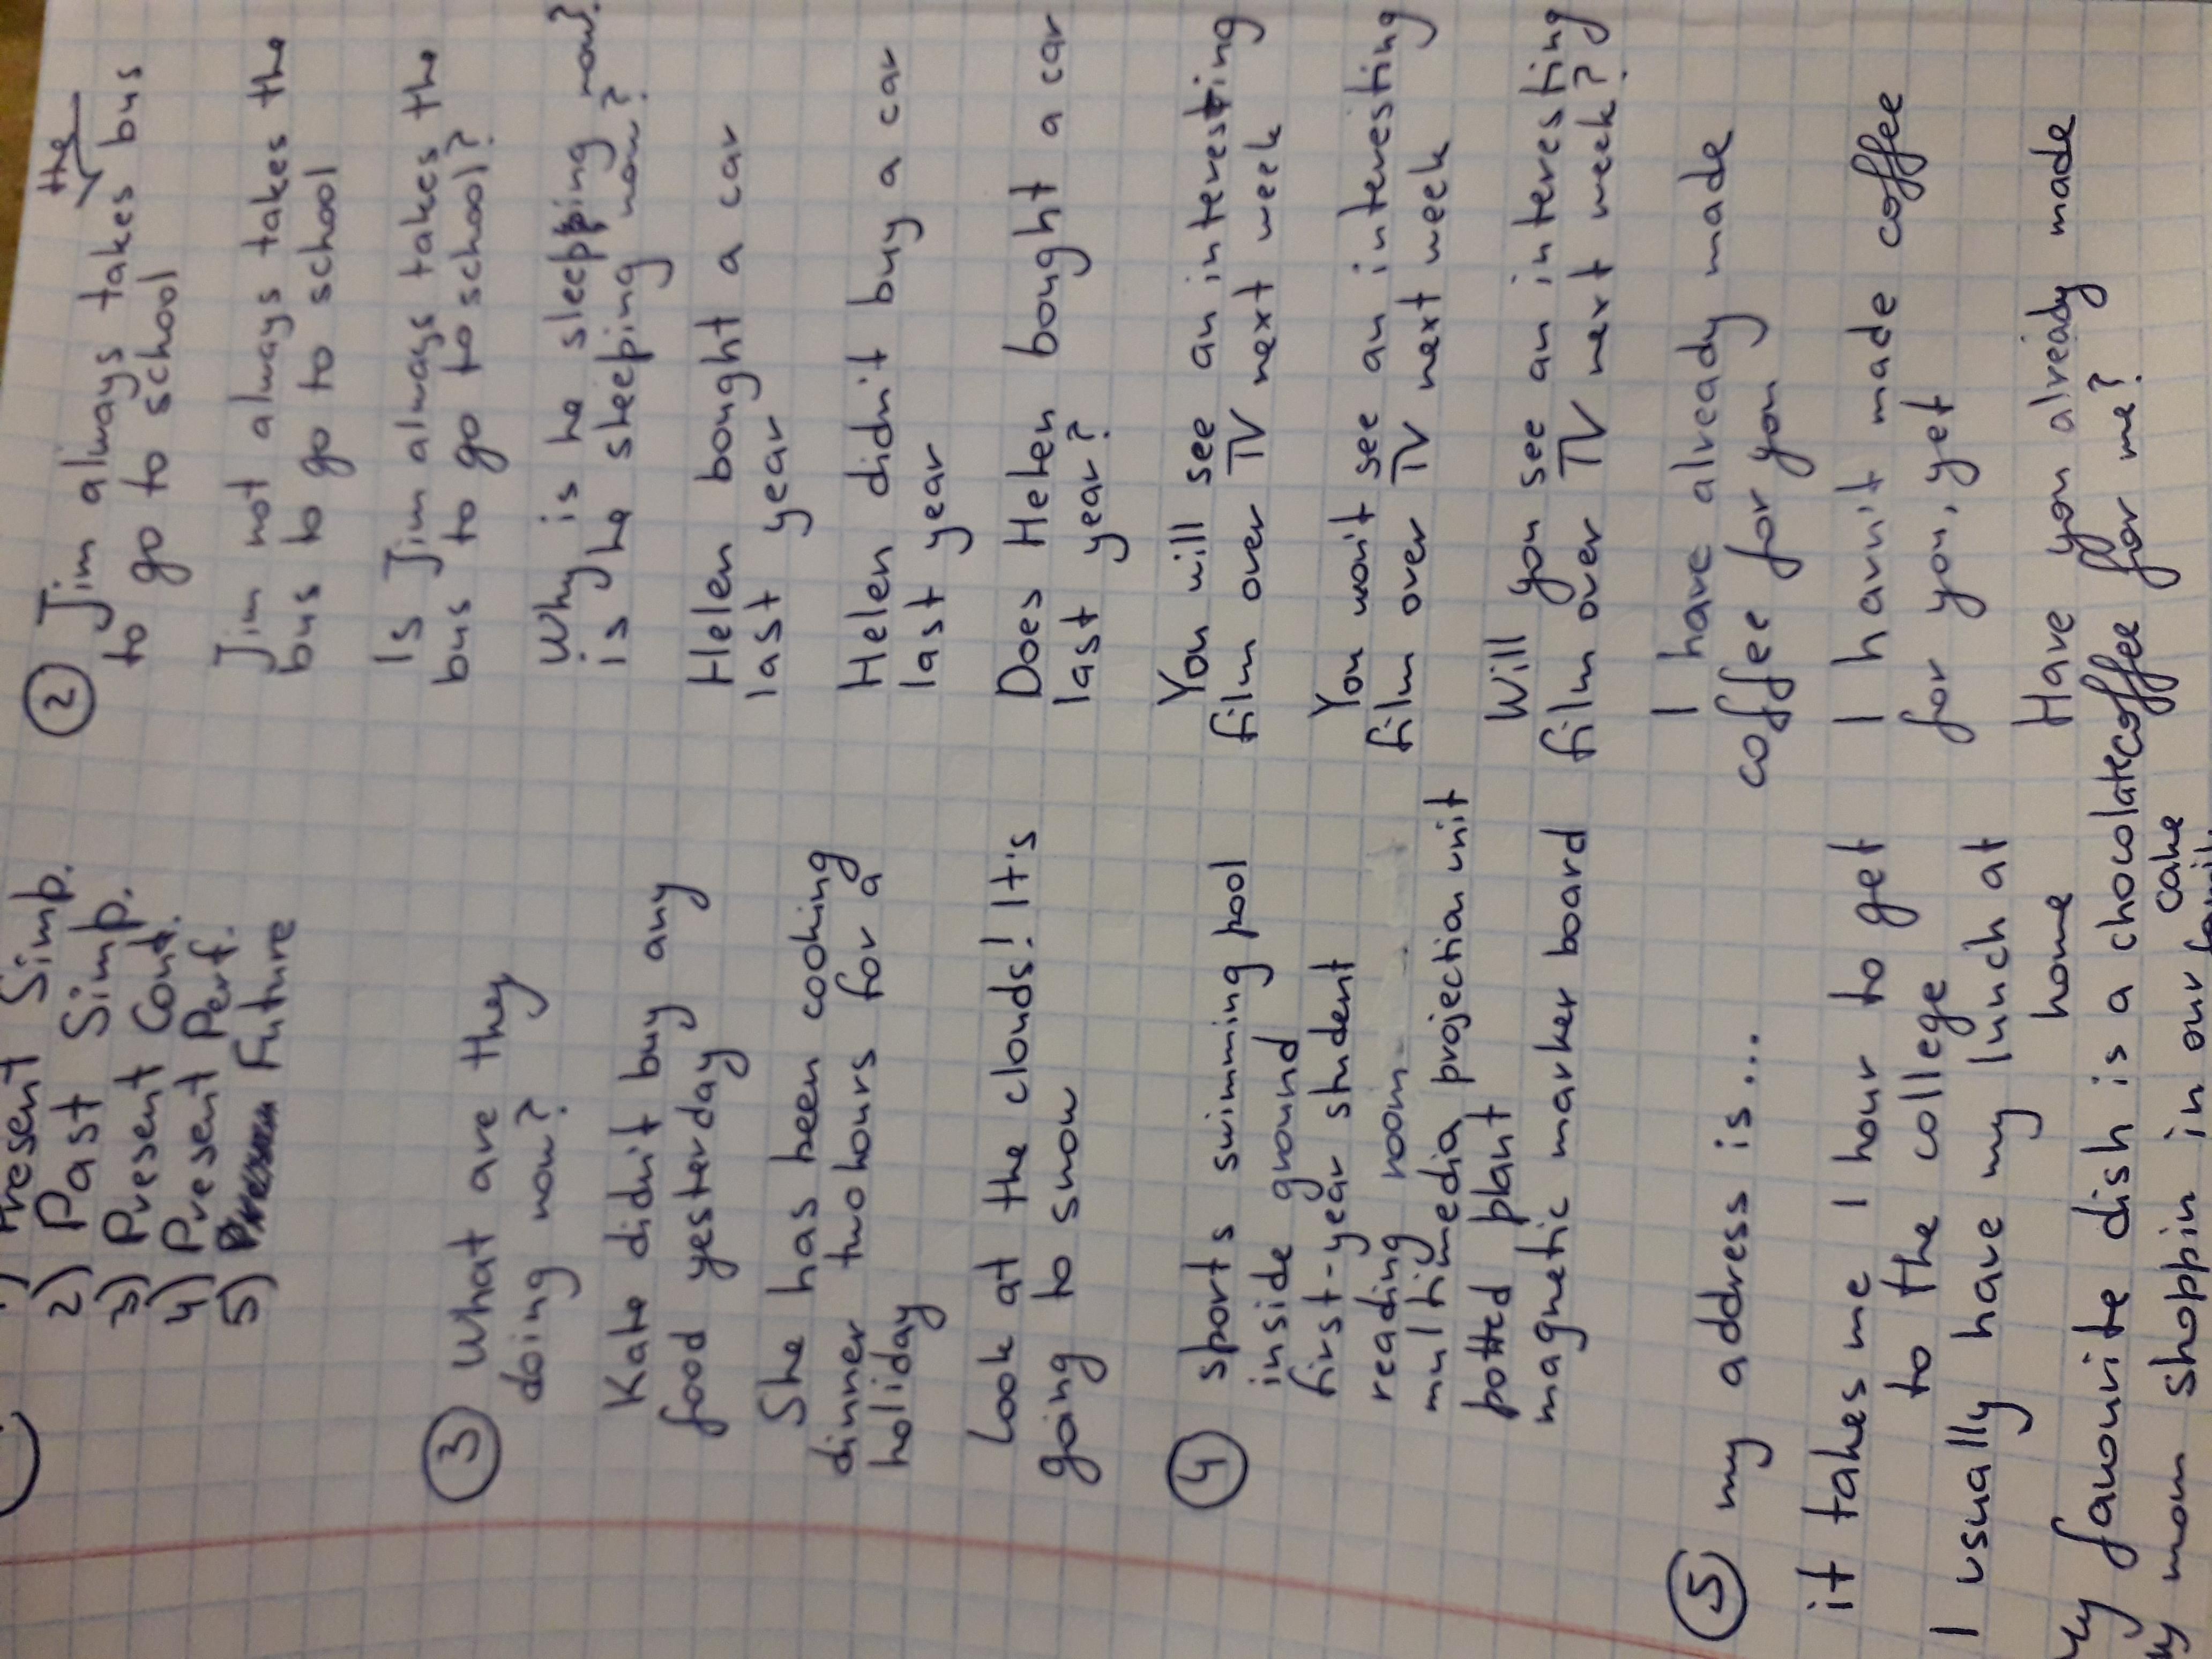 1) Present Simp.
2) Past Simp.
3) Present Cont.
4) Present Perf.
5) Future
3 What are they
doing now?
Kate didn't buy any
food yesterday
She has been cooking
dinner two hours for a
holiday
Look at the clouds! It's
going to snow
4 sports swimming pool
inside ground
first-year student
reading room
multimedia projection unit
potted plant
magnetic marker board
5 my address is...
it takes me 1 hour to get
to the college
I usually have my lunch at
home
My favourite dish is a chocolate
cake
my mom shoppin in our
2 Jim always takes the bus
to go to school
Jim not always takes the
bus to go to school
Is Jim always takes the
bus to go to school?
Why is he sleeping now?
is he sleeping now?
Helen bought a car
last year
Helen didn't buy a car
last year
Does Helen bought a car
last year?
You will see an interesting
film over TV next week
You won't see an interesting
film over TV next week
Will you see an interesting
film over TV next week?
I have already made
coffee for you
I havn't made coffee
for you, yet
Have you already made
coffee for me?